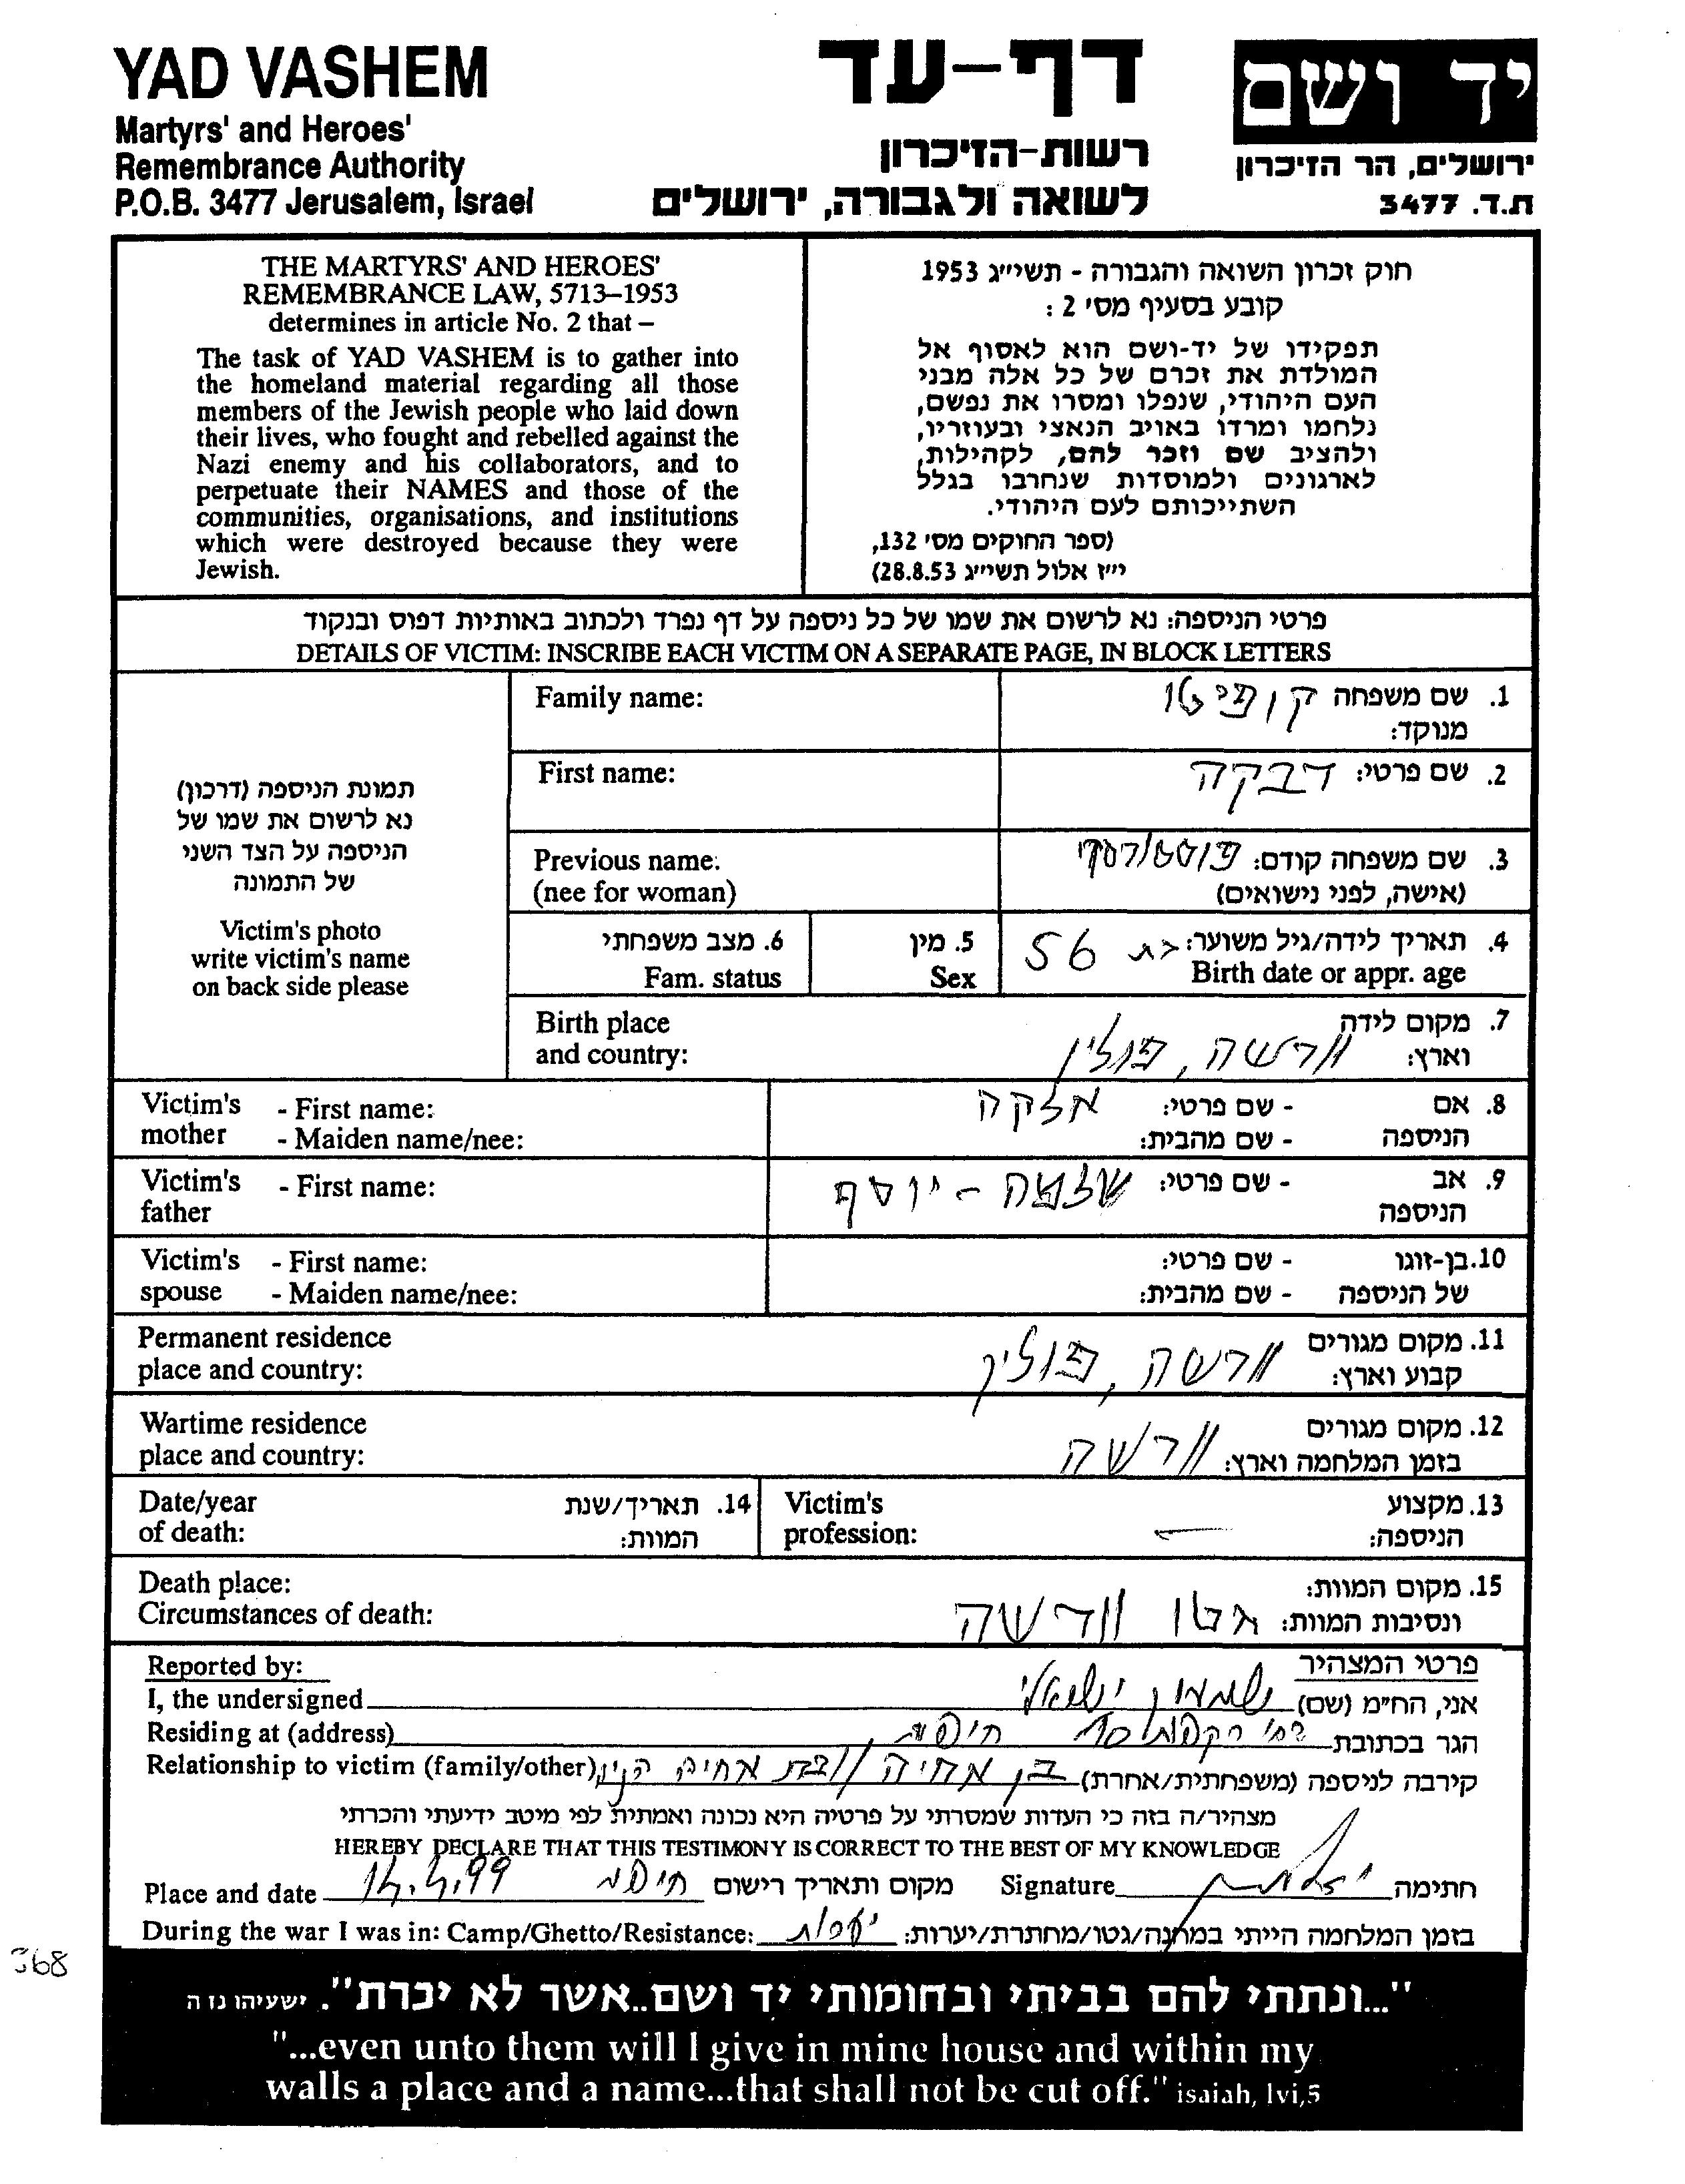 YAD VASHEM
Martyrs' and Heroes'
Remembrance Authority
P.O.B. 3477 Jerusalem, Israel
דף-עד
רשות-הזיכרון
לשואה ולגבורה, ירושלים
יד ושם
ירושלים, הר הזיכרון
ת.ד. 3477
THE MARTYRS' AND HEROES'
REMEMBRANCE LAW, 5713–1953
determines in article No. 2 that –
The task of YAD VASHEM is to gather into
the homeland material regarding all those
members of the Jewish people who laid down
their lives, who fought and rebelled against the
Nazi enemy and his collaborators, and to
perpetuate their NAMES and those of the
communities, organisations, and institutions
which were destroyed because they were
Jewish.
חוק זכרון השואה והגבורה - תשי״ג 1953
קובע בסעיף מס׳ 2 :
תפקידו של יד-ושם הוא לאסוף אל
המולדת את זכרם של כל אלה מבני
העם היהודי, שנפלו ומסרו את נפשם,
נלחמו ומרדו באויב הנאצי ובעוזריו,
ולהציב שם וזכר להם, לקהילות,
לארגונים ולמוסדות שנחרבו בגלל
השתייכותם לעם היהודי.
(ספר החוקים מס׳ 132,
י״ז אלול תשי״ג 28.8.53)
פרטי הניספה: נא לרשום את שמו של כל ניספה על דף נפרד ולכתוב באותיות דפוס ובנקוד
DETAILS OF VICTIM: INSCRIBE EACH VICTIM ON A SEPARATE PAGE, IN BLOCK LETTERS
תמונת הניספה (דרכון)
נא לרשום את שמו של
הניספה על הצד השני
של התמונה
Victim's photo
write victim's name
on back side please
Family name:
1. שם משפחה קופיטו
מנוקד:
First name:
2. שם פרטי: רבקה
Previous name:
(nee for woman)
3. שם משפחה קודם:
(אישה, לפני נישואים)
4. תאריך לידה/גיל משוער: בת 56
Birth date or appr. age
5. מין
Sex
6. מצב משפחתי
Fam. status
Birth place
and country:
7. מקום לידה
וארץ: וורשה, פולין
Victim's mother - First name:
- Maiden name/nee:
8. אם - שם פרטי:
הניספה - שם מהבית:
Victim's father - First name:
9. אב - שם פרטי: שלמה - יוסף
הניספה
Victim's spouse - First name:
- Maiden name/nee:
10. בן-זוגו - שם פרטי:
של הניספה - שם מהבית:
Permanent residence
place and country:
11. מקום מגורים
קבוע וארץ: וורשה, פולין
Wartime residence
place and country:
12. מקום מגורים
בזמן המלחמה וארץ: וורשה
Date/year
of death:
14. תאריך/שנת
המוות:
Victim's
profession:
13. מקצוע
הניספה: —
Death place:
Circumstances of death:
15. מקום המוות:
ונסיבות המוות: גטו וורשה
Reported by:
פרטי המצהיר
I, the undersigned
אני, הח״מ (שם)
Residing at (address)
הגר בכתובת חיפה
Relationship to victim (family/other)
קירבה לניספה (משפחתית/אחרת) בן אחיה
מצהיר/ה בזה כי העדות שמסרתי על פרטיה היא נכונה ואמתית לפי מיטב ידיעתי והכרתי
HEREBY DECLARE THAT THIS TESTIMONY IS CORRECT TO THE BEST OF MY KNOWLEDGE
Place and date 14.4.99 חיפה מקום ותאריך רישום Signature חתימה
During the war I was in: Camp/Ghetto/Resistance: יערות בזמן המלחמה הייתי במחנה/גטו/מחתרת/יערות:
368
"...ונתתי להם בביתי ובחומותי יד ושם..אשר לא יכרת". ישעיהו נו ה
"...even unto them will I give in mine house and within my
walls a place and a name...that shall not be cut off." isaiah, lvi,5